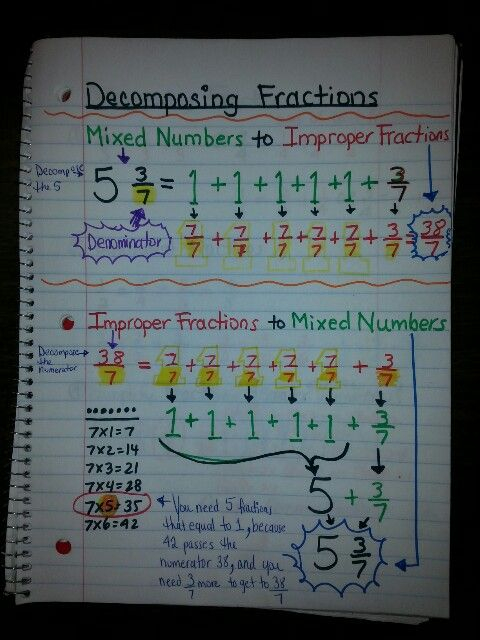 Decomposing Fractions
Mixed Numbers to Improper Fractions
Decompose the 5
5 3/7 = 1 + 1 + 1 + 1 + 1 + 3/7
Denominator
7/7 + 7/7 + 7/7 + 7/7 + 7/7 + 3/7 = 38/7
Improper Fractions to Mixed Numbers
Decompose the numerator
38/7 = 7/7 + 7/7 + 7/7 + 7/7 + 7/7 + 3/7
1 + 1 + 1 + 1 + 1 + 3/7
5 + 3/7
5 3/7
7x1=7
7x2=14
7x3=21
7x4=28
7x5=35
7x6=42
You need 5 fractions
that equal to 1, because
42 passes the
numerator 38, and you
need 3/7 more to get to 38/7